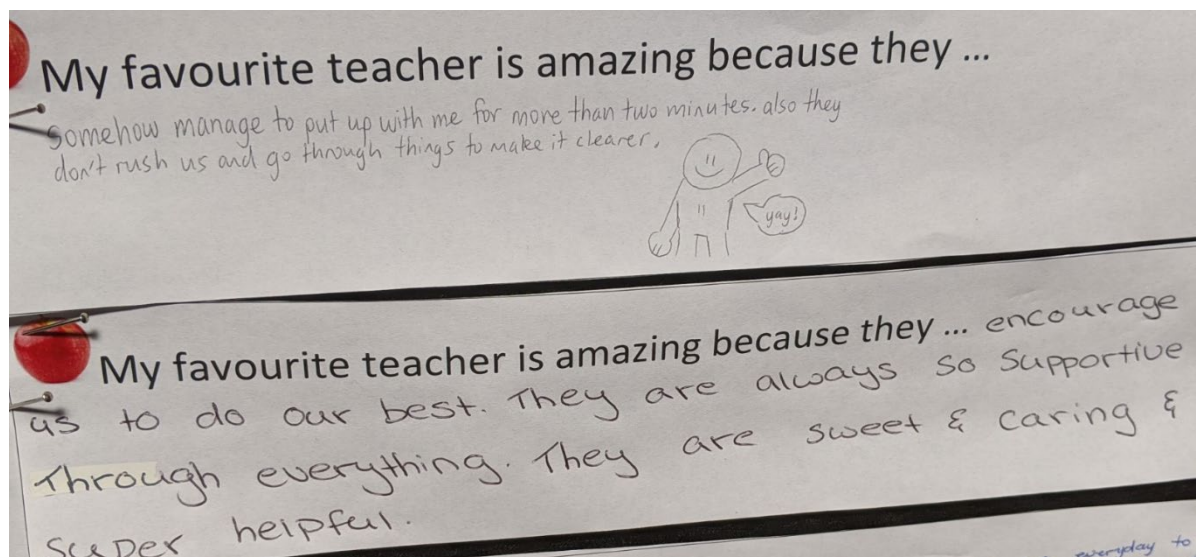 My favourite teacher is amazing because they ...
Somehow manage to put up with me for more than two minutes. also they
don't rush us and go through things to make it clearer.
yay!
My favourite teacher is amazing because they ... encourage
us to do our best. They are always so supportive
Through everything. They are sweet & caring &
super helpful.
everyday to